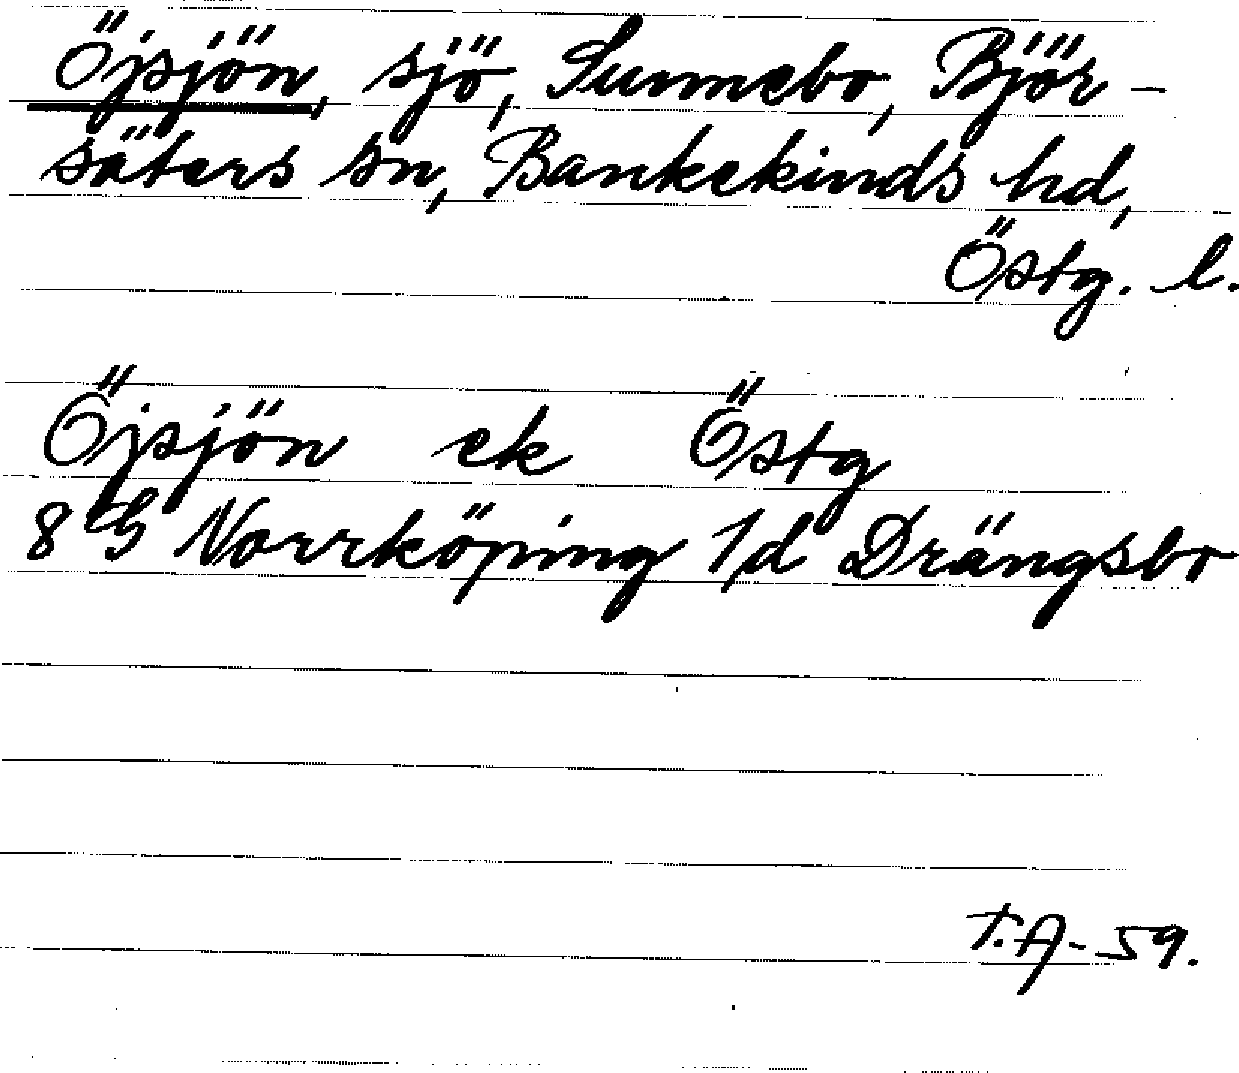 Öjsjön, sjö, Sunnebo, Björ-
säters sn, Bankekinds hd,
Östg. l.
Öjsjön ek Östg
8 G Norrköping 1/d Drängsbo
T.A-59.